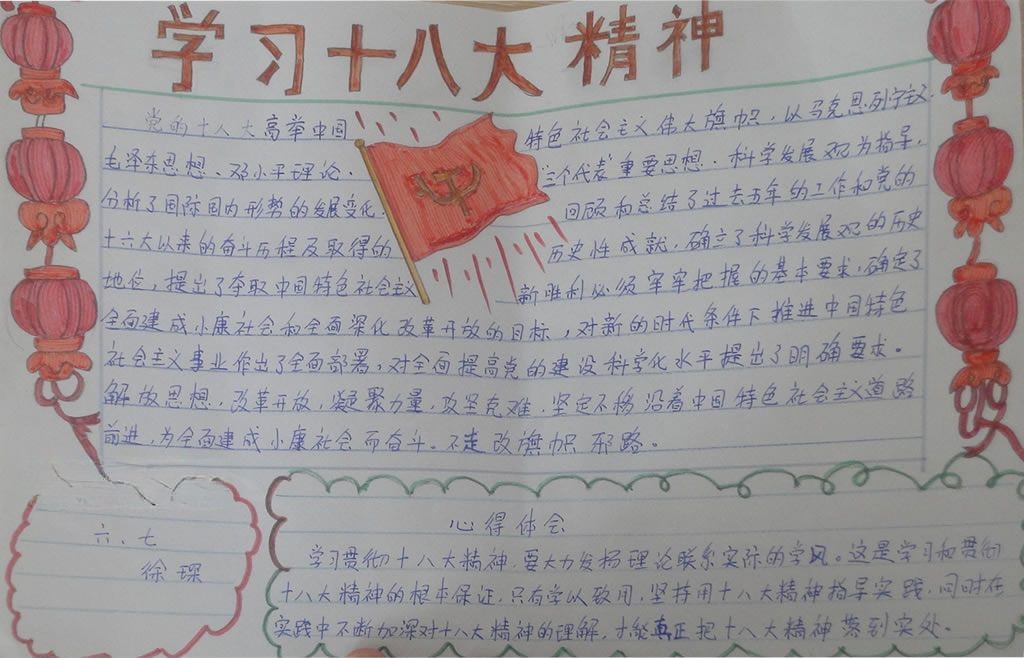 学习十八大精神
党的十八大高举中国特色社会主义伟大旗帜，以马克思列宁主义、
毛泽东思想、邓小平理论、“三个代表”重要思想、科学发展观为指导，
分析了国际国内形势的发展变化，回顾和总结了过去五年的工作和党的
十六大以来的奋斗历程及取得的历史性成就，确立了科学发展观的历史
地位，提出了夺取中国特色社会主义新胜利必须牢牢把握的基本要求，确定了
全面建成小康社会和全面深化改革开放的目标，对新的时代条件下推进中国特色
社会主义事业作出了全面部署，对全面提高党的建设科学化水平提出了明确要求。
解放思想，改革开放，凝聚力量，攻坚克难，坚定不移沿着中国特色社会主义道路
前进，为全面建成小康社会而奋斗。不走改旗帜邪路。
六、七
徐琛
心得体会
学习贯彻十八大精神，要大力发扬理论联系实际的学风。这是学习和贯彻
十八大精神的根本保证，只有学以致用，坚持用十八大精神指导实践，同时在
实践中不断加深对十八大精神的理解，才能真正把十八大精神落到实处。